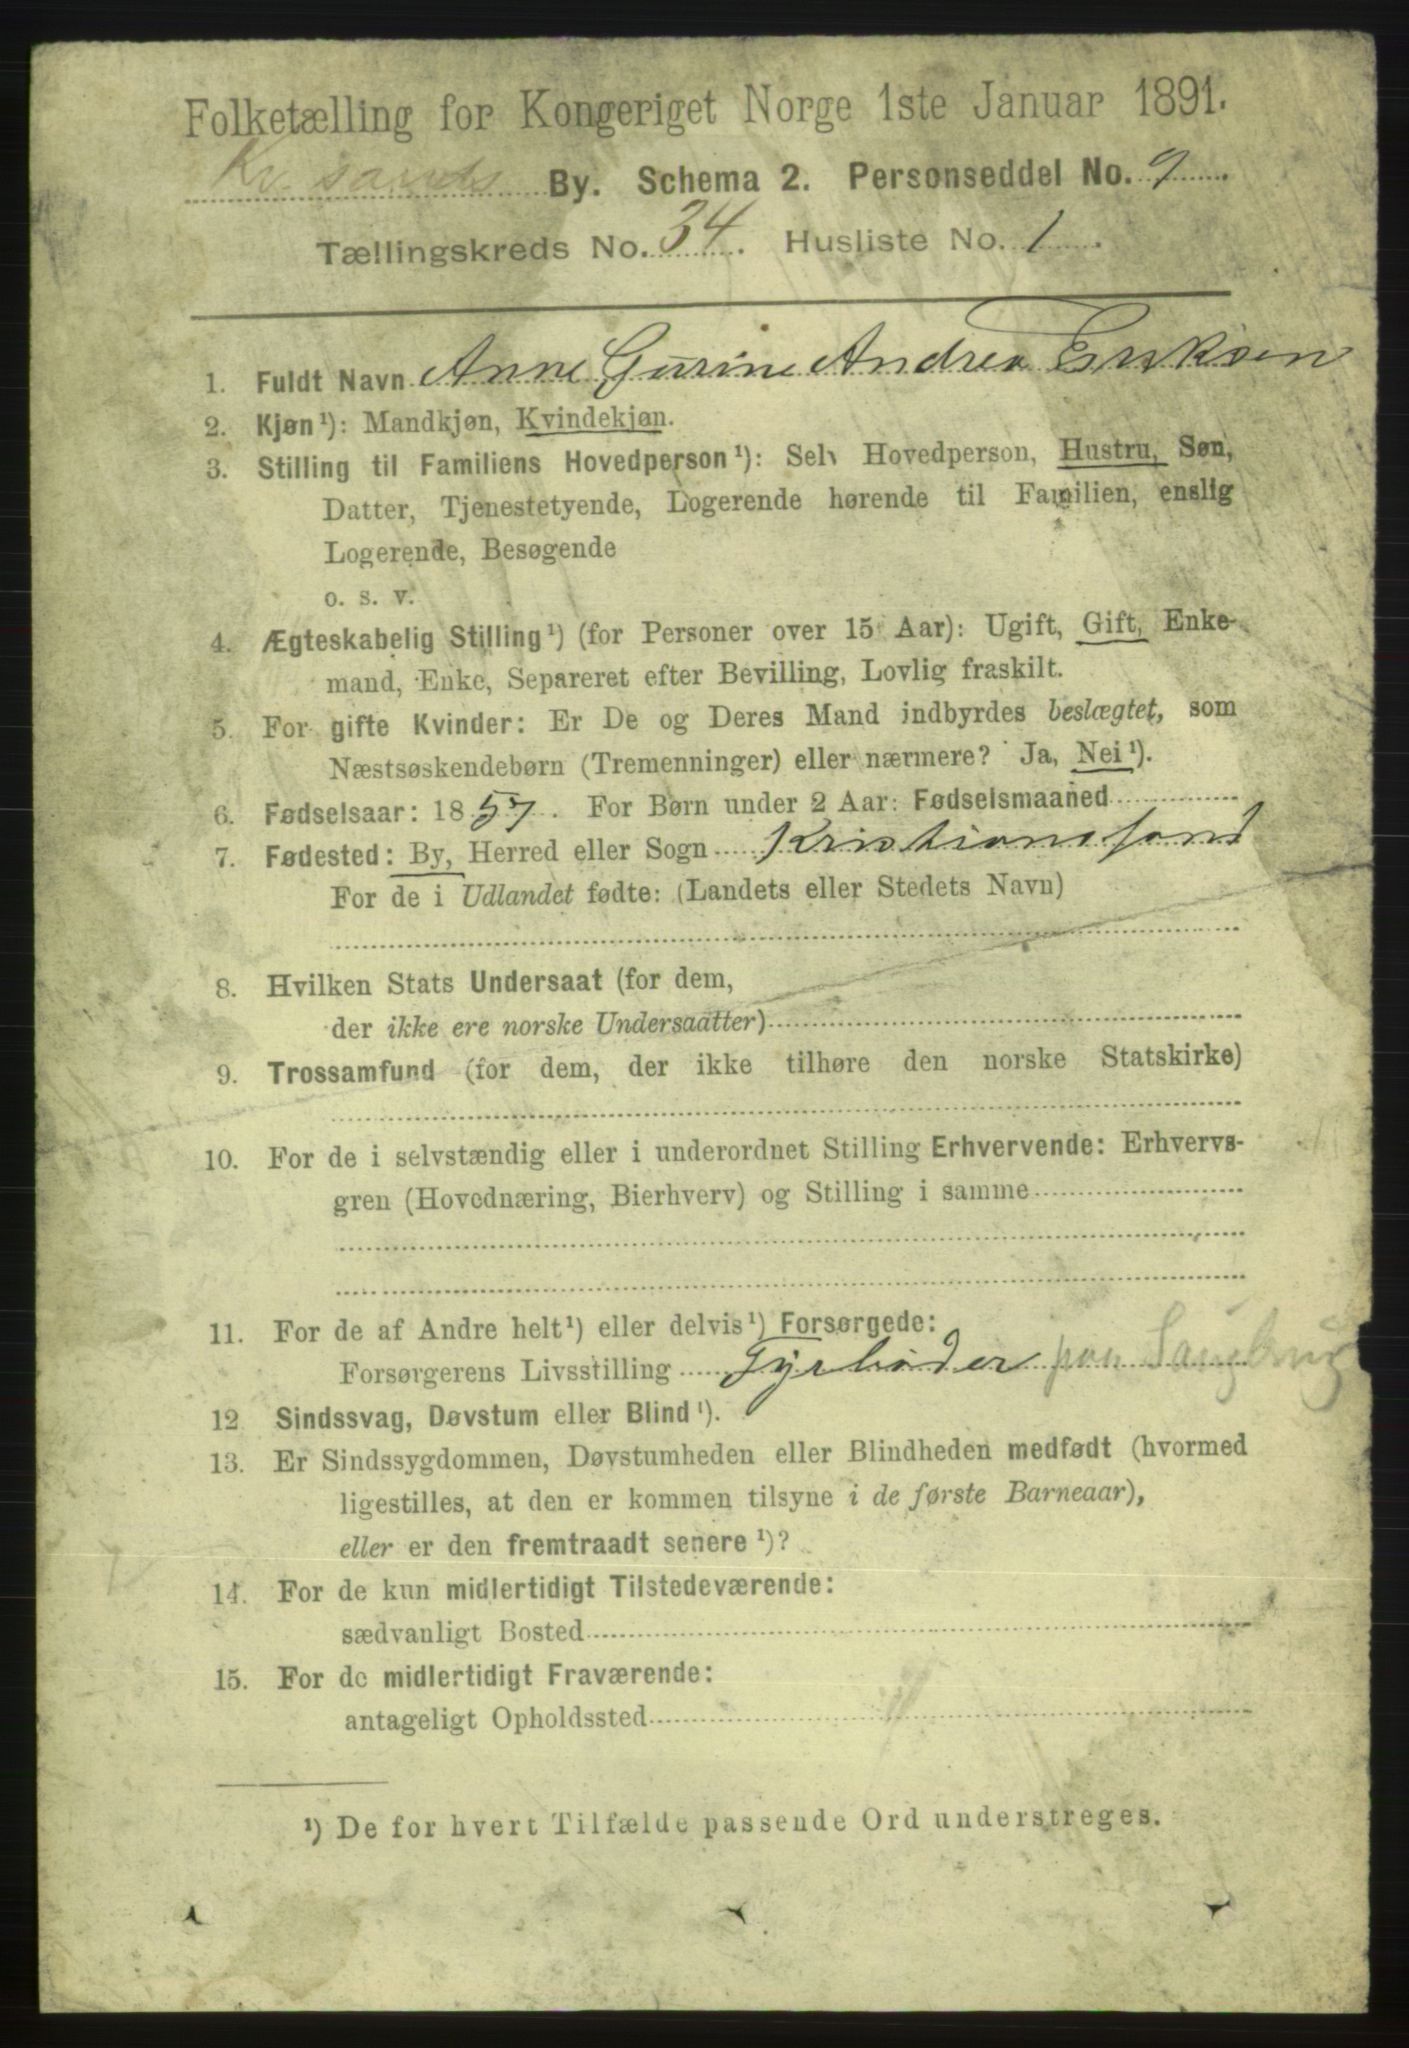 Folketælling for Kongeriget Norge 1ste Januar 1891.
Kr.sands By. Schema 2. Personseddel No. 9
Tællingskreds No. 34. Husliste No. 1.
1. Fuldt Navn Anne Gurine Andrea Eriksen
2. Kjøn¹): Mandkjøn, Kvindekjøn.
3. Stilling til Familiens Hovedperson¹): Selv Hovedperson, Hustru, Søn,
Datter, Tjenestetyende, Logerende hørende til Familien, enslig
Logerende, Besøgende
o. s. v.
4. Ægteskabelig Stilling¹) (for Personer over 15 Aar): Ugift, Gift, Enke-
mand, Enke, Separeret efter Bevilling, Lovlig fraskilt.
5. For gifte Kvinder: Er De og Deres Mand indbyrdes beslægtet, som
Næstsøskendebørn (Tremenninger) eller nærmere? Ja, Nei¹).
6. Fødselsaar: 1857. For Børn under 2 Aar: Fødselsmaaned
7. Fødested: By, Herred eller Sogn Kristianssand
For de i Udlandet fødte: (Landets eller Stedets Navn)
8. Hvilken Stats Undersaat (for dem,
der ikke ere norske Undersaatter)
9. Trossamfund (for dem, der ikke tilhøre den norske Statskirke)
10. For de i selvstændig eller i underordnet Stilling Erhvervende: Erhvervs-
gren (Hovednæring, Bierhverv) og Stilling i samme
11. For de af Andre helt¹) eller delvis¹) Forsørgede:
Forsørgerens Livsstilling Fyrbøder paa Saugbrug
12 Sindssvag, Døvstum eller Blind¹).
13. Er Sindssygdommen, Døvstumheden eller Blindheden medfødt (hvormed
ligestilles, at den er kommen tilsyne i de første Barneaar),
eller er den fremtraadt senere¹)?
14. For de kun midlertidigt Tilstedeværende:
sædvanligt Bosted
15. For de midlertidigt Fraværende:
antageligt Opholdssted
¹) De for hvert Tilfælde passende Ord understreges.